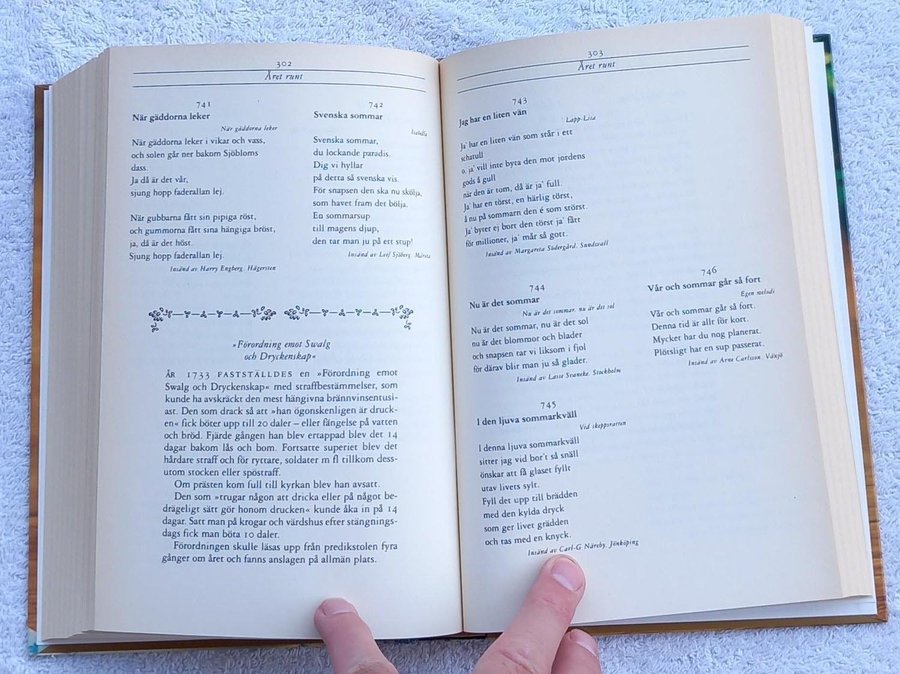 302
Året runt
741
När gäddorna leker
När gäddorna leker
När gäddorna leker i vikar och vass,
och solen går ner bakom Sjöbloms
dass.
Ja då är det vår,
sjung hopp faderallan lej.
När gubbarna fått sin pipiga röst,
och gummorna fått sina hängiga bröst,
ja, då är det höst.
Sjung hopp faderallan lej.
Insänd av Harry Engberg, Hägersten
742
Svenska sommar
Svenska sommar,
du lockande paradis.
Dig vi hyllar
på detta så svenska vis.
För snapsen den ska nu skölja,
som havet fram det bölja.
En sommarsup
till magens djup,
den tar man ju på ett stup!
Insänd av Leif Sjöberg, Märsta
»Förordning emot Swalg
och Dryckenskap«
ÅR 1733 FASTSTÄLLDES en »Förordning emot
Swalg och Dryckenskap« med straffbestämmelser, som
kunde ha avskräckt den mest hängivna brännvinsentusi-
ast. Den som drack så att »han ögonskenligen är druck-
en« fick böter upp till 20 daler – eller fängelse på vatten
och bröd. Fjärde gången han blev ertappad blev det 14
dagar bakom lås och bom. Fortsatte superiet blev det
hårdare straff och för ryttare, soldater m fl tillkom dess-
utom stocken eller spöstraff.
Om prästen kom full till kyrkan blev han avsatt.
Den som »trugar någon att dricka eller på något be-
drägeligt sätt gör honom drucken« kunde åka in på 14
dagar. Satt man på krogar och värdshus efter stängnings-
dags fick man böta 10 daler.
Förordningen skulle läsas upp från predikstolen fyra
gånger om året och fanns anslagen på allmän plats.
303
Året runt
743
Jag har en liten vän
Lapp-Lisa
Ja' har en liten vän som står i ett
schatull
o, ja' vill inte byta den mot jordens
gods å gull
när den är tom, då är ja' full.
Ja' har en törst, en härlig törst,
å nu på sommarn den é som störst.
Ja' byter ej bort den törst ja' fått
för millioner, ja' mår så gott.
Insänd av Margareta Södergård, Sundsvall
744
Nu är det sommar
Nu är det sommar, nu är det sol
Nu är det sommar, nu är det sol
nu är det blommor och blader
och snapsen tar vi liksom i fjol
för därav blir man ju så glader.
Insänd av Lasse Svancke, Stockholm
745
I den ljuva sommarkväll
Vid skepparsatan
I denna ljuva sommarkväll
sitter jag vid bor't så snäll
önskar att få glaset fyllt
utav livets sylt.
Fyll det upp till brädden
med den kylda dryck
som ger livet grädden
och tas med en knyck.
Insänd av Carl-G Näreby, Jönköping
746
Vår och sommar går så fort
Egen melodi
Vår och sommar går så fort.
Denna tid är allt för kort.
Mycket har du nog planerat.
Plötsligt har en sup passerat.
Insänd av Arne Carlsson, Växjö